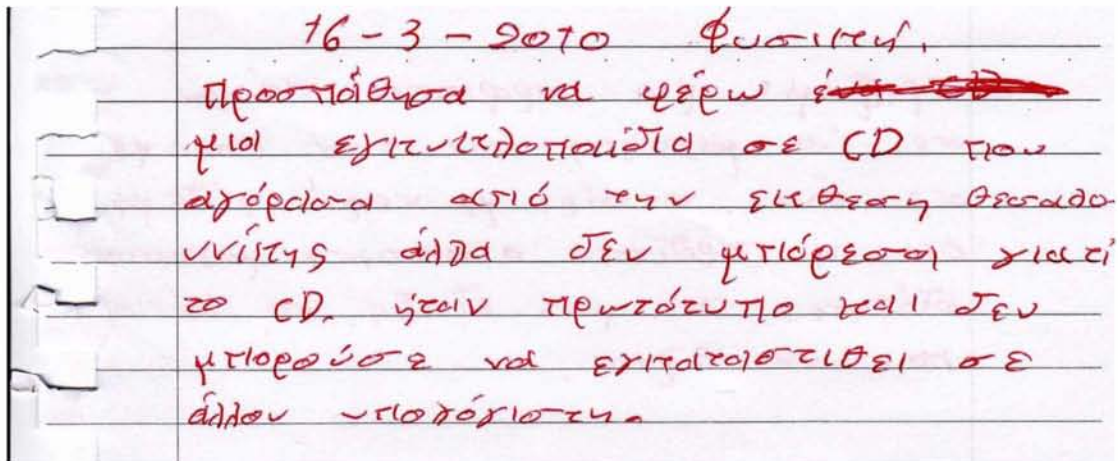 16-3-2010 Φυσική.
Προσπάθησα να φέρω ένα CD
μια εγκυκλοπαιδία σε CD που
αγόρασα από την έκθεση Θεσαλο
ννίκης άλλα δεν μπόρεσα γιατί
το CD. ήταν πρωτότυπο και δεν
μπορούσε να εγκαταστιθεί σε
άλλον υπολόγιστη.